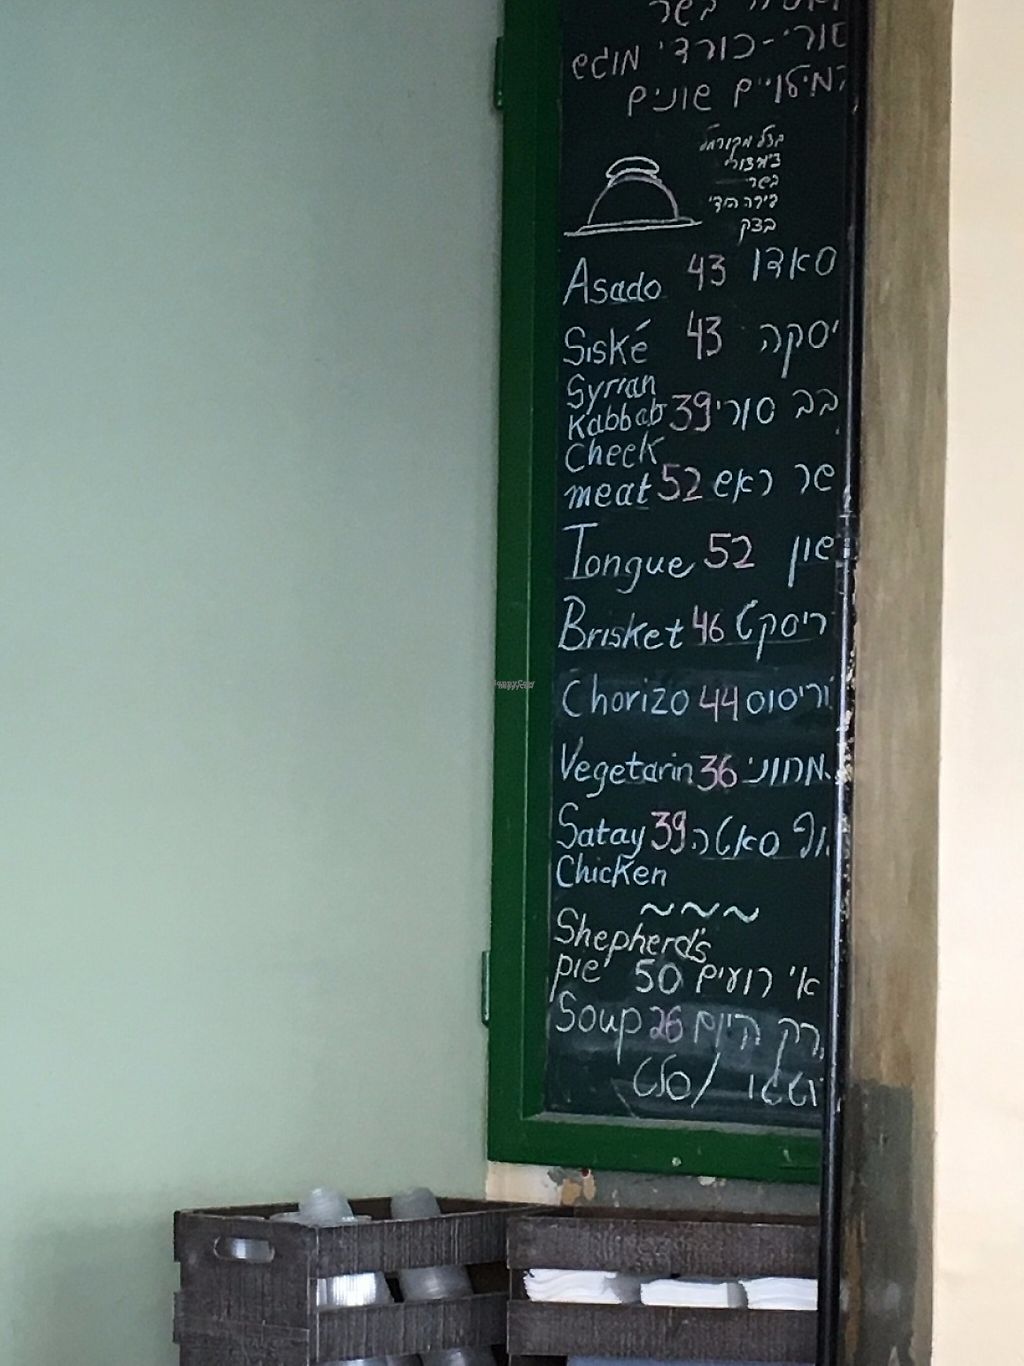 בשר
סורי-כורדי מוגש
במילויים שונים
בצל מקורמל
צ'ימצ'ורי
בשר
בצק
Asado 43 סאדו
Siské 43 יסקה
Syrian
Kabbab 39 בב סורי
Cheek
meat 52 שר ראש
Tongue 52 שון
Brisket 46 ריסקט
Chorizo 44 וריסוס
Vegetarin 36 מחוני
Satay 39 וף סאטה
Chicken
~~~
Shepherd's
pie 50 אי רועים
Soup 26 רק היום
/סלט